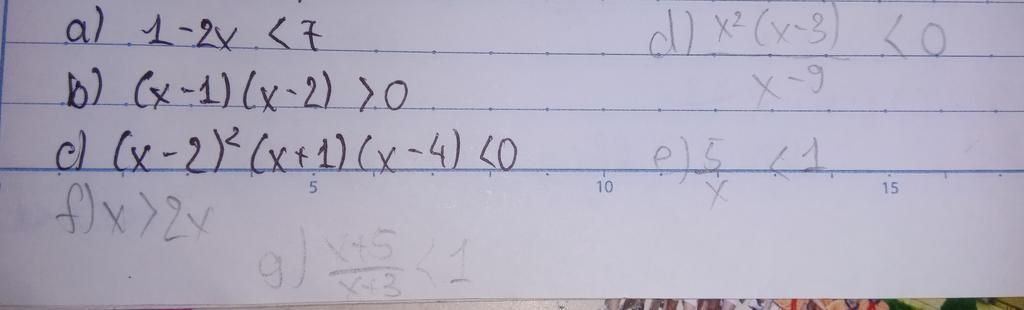 a) 1-2x <7
b) (x-1)(x-2) >0
c) (x-2)²(x+1)(x-4) <0
d) x²(x-3)/x-9 <0
e) 5/x <1
5 10 15
f) x>2x
g) x+5/x+3 <1